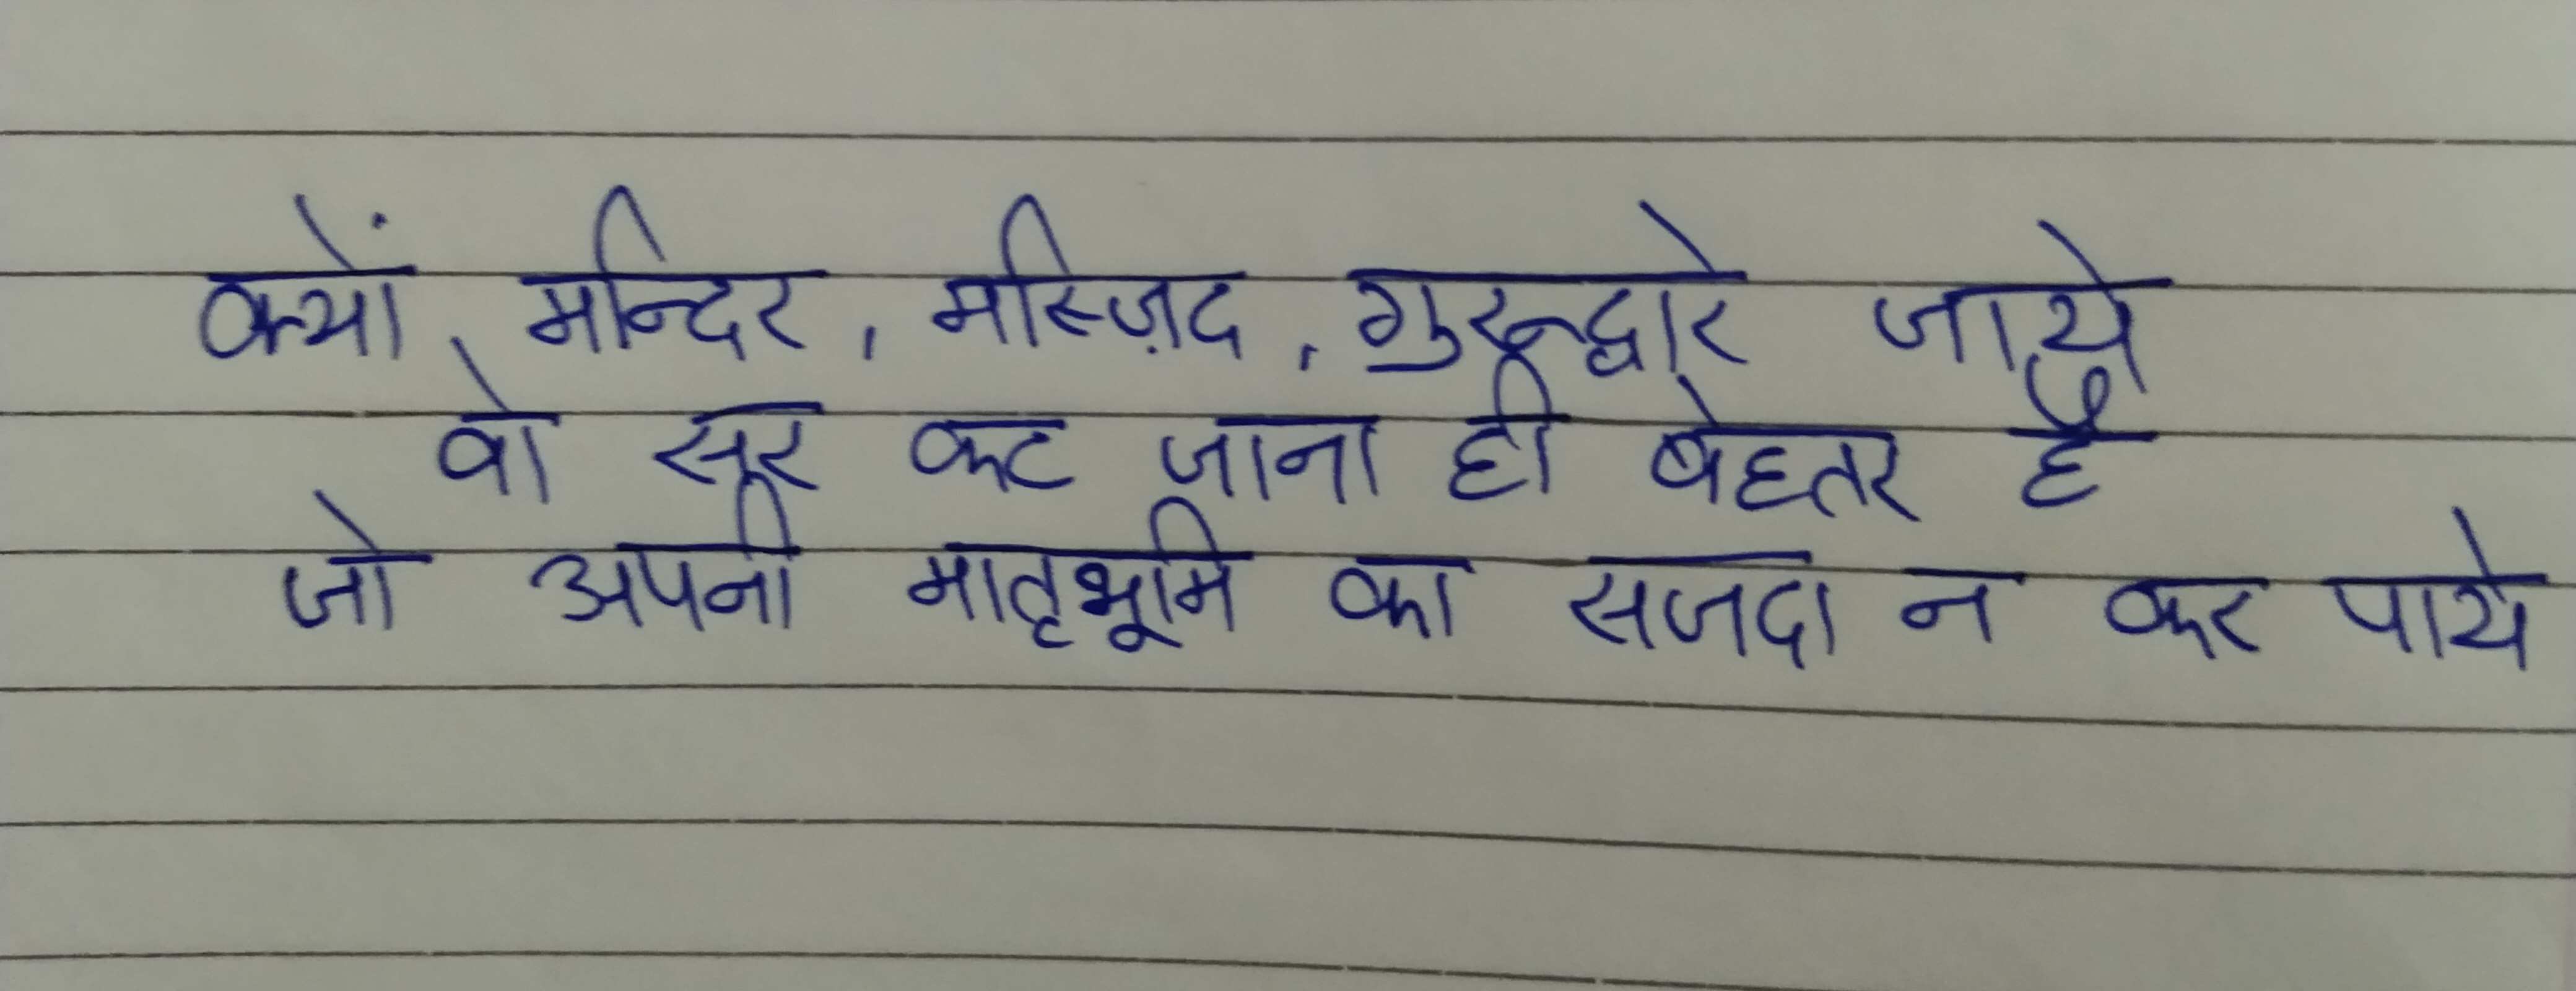 क्यों, मन्दिर, मस्ज़िद, गुरुद्वारे जाये
वो सुर कट जाना ही बेहतर है
जो अपनी मातृभूमि का सजदा न कर पाये